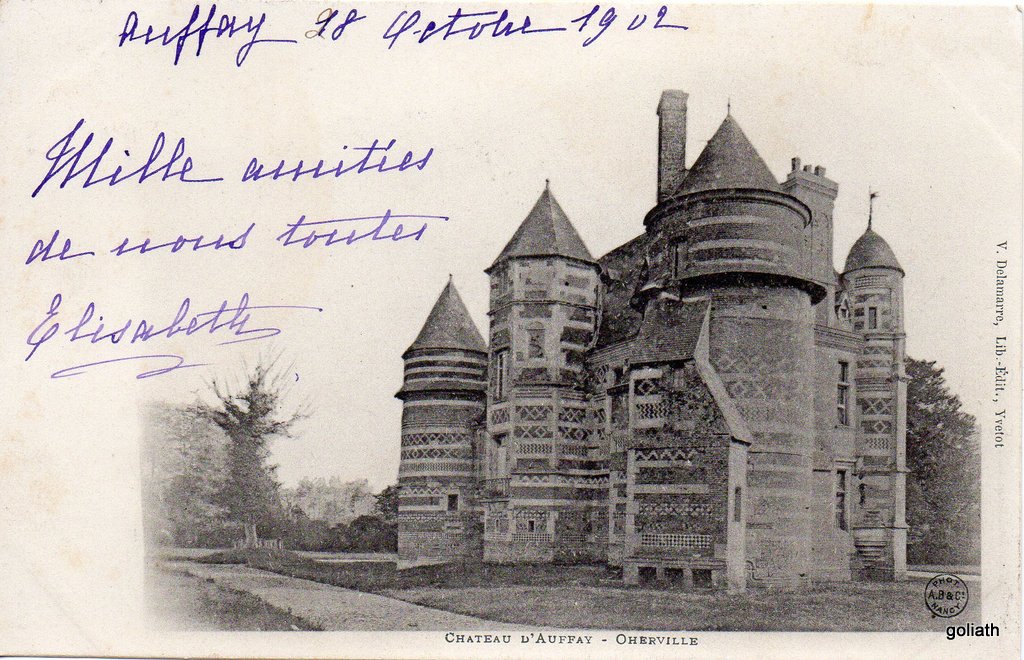 Auffay 28 Octobre 1902
Mille amitiés
de nous toutes
Elisabeth
V. Delamarre, Lib.-Édit., Yvetot
PHOT.
A.B & Cie
NANCY
CHATEAU D'AUFFAY - OHERVILLE
goliath